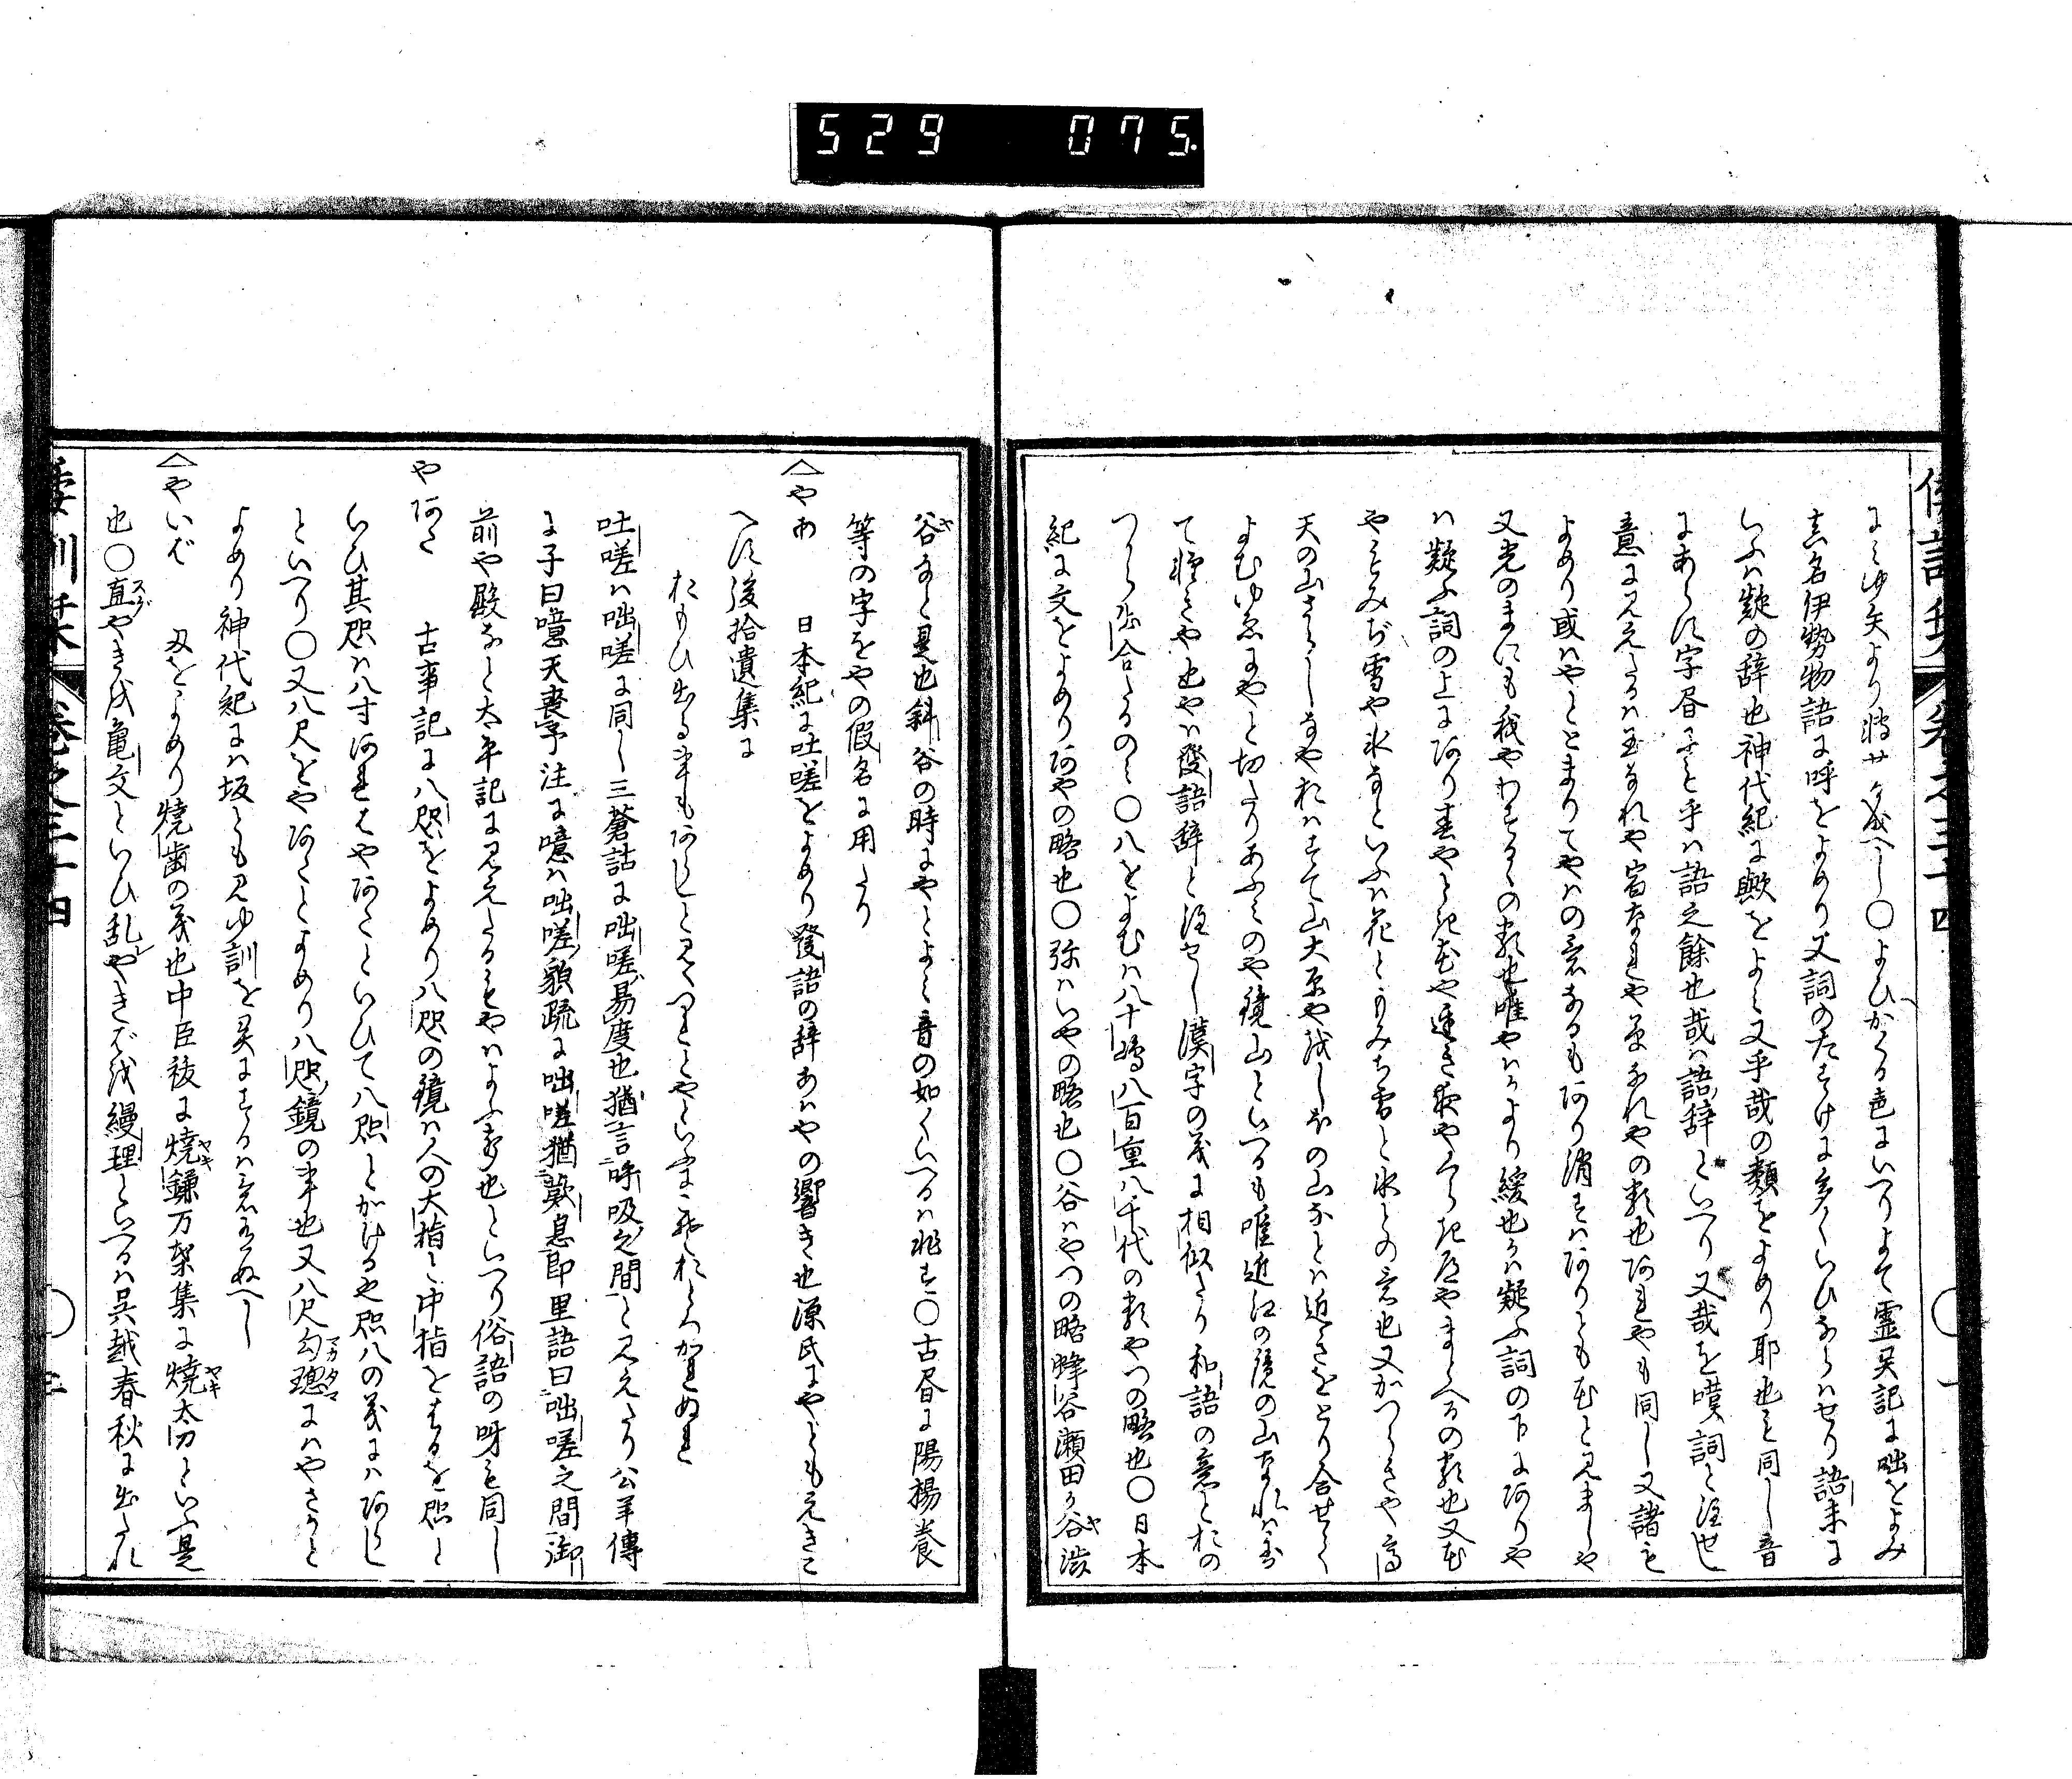 529 075
倭訓栞 巻之三十四
にみゆ矢より転せる成へし〇よひかくる色にいつりよて霊異記に咄をよみ
真名伊勢物語に呼をよめり又詞のたすけに多くいひならハせり語末に
いふハ疑の辞也神代紀に歟をよみ又乎哉の類をよめり耶也も同し音
にあらす字書に乎ハ語之餘也哉ハ語辞といへり又哉を嘆詞と注せし
意に見えたるハ玉なれや宿なれや草なれやの類也あれやも同し又諸を
よめり或ハやととまりてやハの意なるもあり消すハありとも花と見ましや
又光のまにも我やわするるの類也唯やハかより緩也かハ疑ふ詞の下にありや
ハ疑ふ詞の上にあり春やとき花や遅き
やもみぢ雪や氷なといふハ花ともみち雪と氷との意也又かつらきや高
天の山さらしなやおハすて山大原やをしほの山なとハ近きをとり合せ
よむゆゑにやと切たりあふみのや鏡山といへるも唯近江の鏡の山なれハ
や也やハ發語辞と注せし漢字の義に相似たり和語の意とおの
つから出合たるのミ〇八をよむハ八十嶋八百重八千代の類やつの略也〇日本
紀に文をよめりあやの略也〇弥ハいやの略也〇谷ハやつの略蜂谷瀬田か谷渋
谷なと是也斜谷の時にやとよみ音の如くいへるハ非す〇古書に陽楊養
等の字をやの假名に用たり
やあ 日本紀に吐嗟をよめり發語の辞あハやの響き也源氏にやともえきこ
へす後拾遺集に
おもひ出る事もあらしと見えつれとやといふにこそおとろかれぬれ
吐嗟ハ咄嗟に同し三蒼詁に咄嗟易度也猶言呼吸之間と見えたり公羊傳
に子曰噫天喪予注に噫ハ咄嗟貌疏に咄嗟猶歎息即里語曰咄嗟之間御
前や殿なと太平記に見えたるもやハよふ聲也といへり俗語の呀も同し
やあた 古事記に八咫をよめり八咫の鏡ハ人の大指と中指をはるを咫と
いひ其咫ハ八寸あれはやあたといひて八咫とかけるや咫八の義にハあらし
といへり〇又八尺をやあたとよめり八咫鏡の事也又八尺勾璁にハやさかと
よめり神代紀にハ坂とも見ゆ訓を異にするハ意有ぬへし
やいば 刄をよめり焼歯の義也中臣祓に焼鎌万葉集に焼太刀といふ是
也〇直やきを亀文といひ乱やきばを縵理といへるハ呉越春秋に出たれ
倭訓栞 巻之三十四